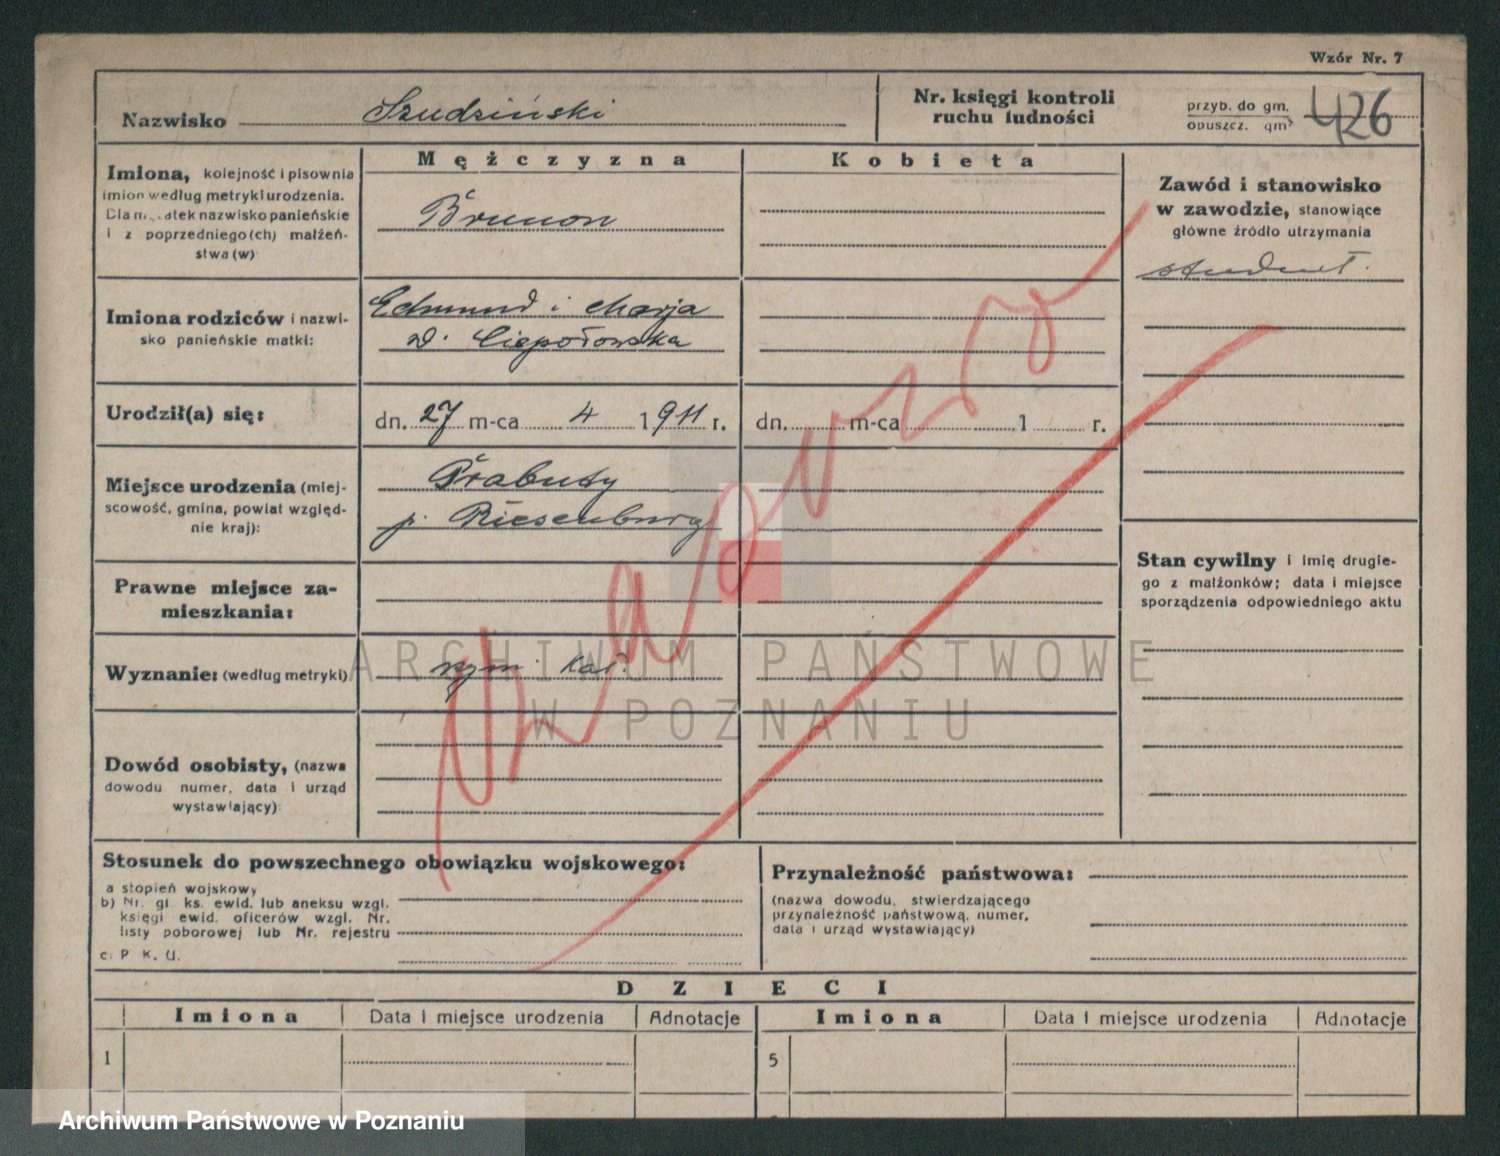 Wzór Nr. 7
Nazwisko Szudziński
Nr. księgi kontroli
ruchu ludności
przyb. do gm.
opuszcz. gm.
426
Mężczyzna
Kobieta
Imiona, kolejność i pisownia
imion według metryki urodzenia.
Dla mężatek nazwisko panieńskie
i z poprzedniego(ch) małżeń-
stwa(w)
Brunon
Zawód i stanowisko
w zawodzie, stanowiące
główne źródło utrzymania
student.
Imiona rodziców i nazwi-
sko panieńskie matki:
Edmund i Marja
d. Ciepołowska
Urodził(a) się:
dn. 27 m-ca 4 1911 r.
dn. m-ca 1 r.
Miejsce urodzenia (miej-
scowość, gmina, powiat względ-
nie kraj):
Prabuty
p. Riesenburg
Stan cywilny i imię drugie-
go z małżonków; data i miejsce
sporządzenia odpowiedniego aktu
Prawne miejsce za-
mieszkania:
Wyznanie: (według metryki)
rzym. kat.
ARCHIWUM PAŃSTWOWE
W POZNANIU
Dowód osobisty, (nazwa
dowodu numer, data i urząd
wystawiający):
Stosunek do powszechnego obowiązku wojskowego:
a stopień wojskowy
b) Nr. gł. ks. ewid. lub aneksu wzgl.
księgi ewid. oficerów wzgl. Nr.
listy poborowej lub Nr. rejestru
c. P. K. U.
Przynależność państwowa:
(nazwa dowodu, stwierdzającego
przynależność państwową, numer,
data i urząd wystawiający)
DZIECI
Imiona Data i miejsce urodzenia Adnotacje Imiona Data i miejsce urodzenia Adnotacje
1 5
Archiwum Państwowe w Poznaniu